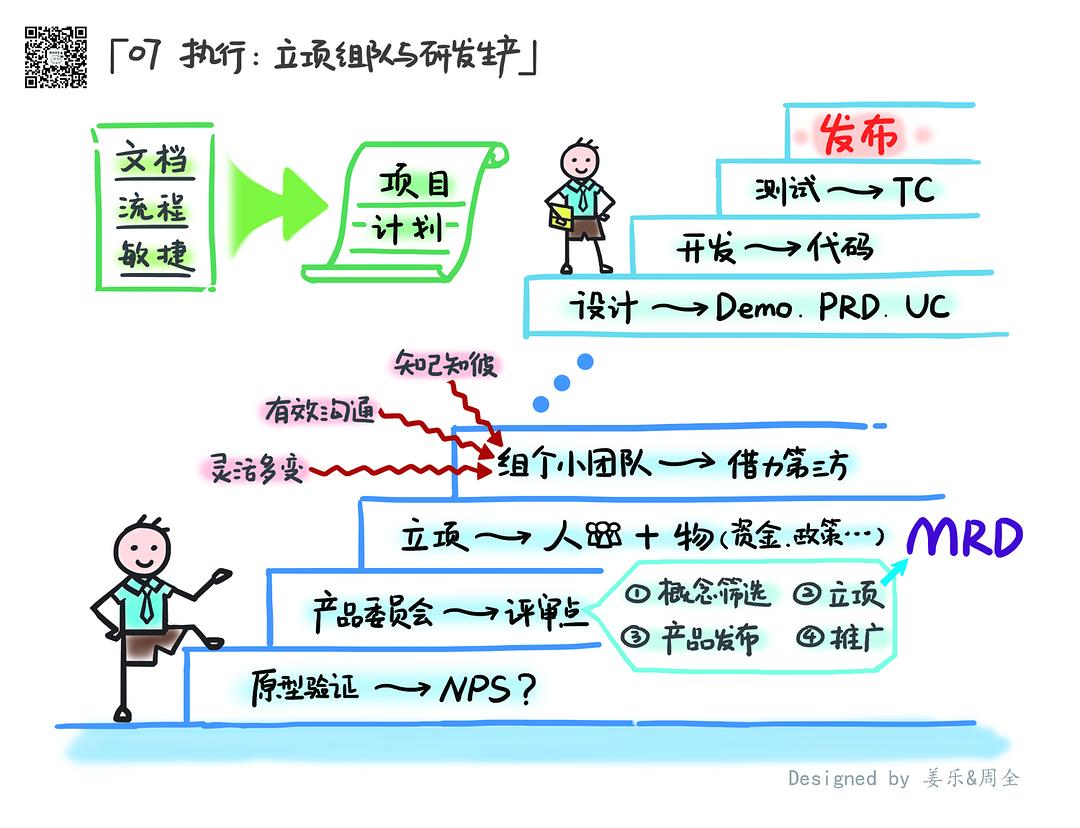 「07 执行：立项组队与研发生产」
文档
流程
敏捷
项目
计划
发布
测试→TC
开发→代码
设计→Demo. PRD. UC
知己知彼
有效沟通
灵活多变
组个小团队→借力第三方
立项→人+物(资金.政策…)
MRD
产品委员会→评审点
①概念筛选 ②立项
③产品发布 ④推广
原型验证→NPS?
Designed by 姜乐&周全